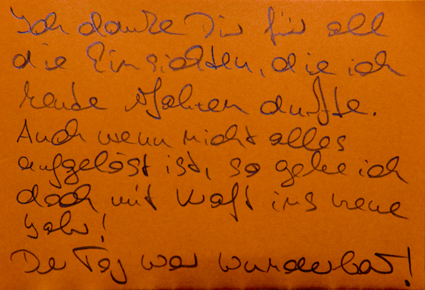 Ich danke Dir für all
die Einsichten, die ich
heute erfahren durfte.
Auch wenn nicht alles
aufgelöst ist, so gehe ich
doch mit Kraft ins neue
Jahr!
Der Tag war wunderbar!